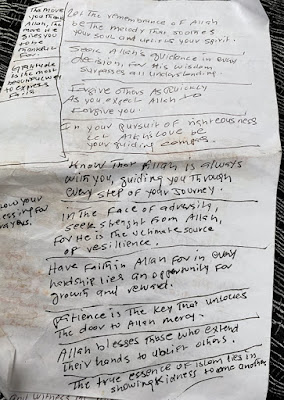 The more
you thank
Allah, the
more He
gives you
to be
thankful
for.
Gratitude
is the most
beautiful way
to express
Faith
Let the remembrance of Allah
be the melody that soothes
your soul and uplifts your spirit.
Seek Allah's guidance in every
decision, for His wisdom
surpasses all understanding.
Forgive others as quickly
as you expect Allah to
Forgive you.
In your pursuit of righteousness
Let Allah's Love be
your guiding compass.
Know that Allah is always
with you, guiding you through
every step of your journey.
your
blessing for
prayers.
In the face of adversity,
seek strenght from Allah,
for He is the ultimate source
of resilience.
Have faith in Allah for in every
hardship lies an opportunity for
growth and reward.
Patience is the key that unlocks
The door to Allah mercy.
Allah blesses those who extend
their hands to uplift others.
The true essence of islam lies in
showing kidness to one another
and witness